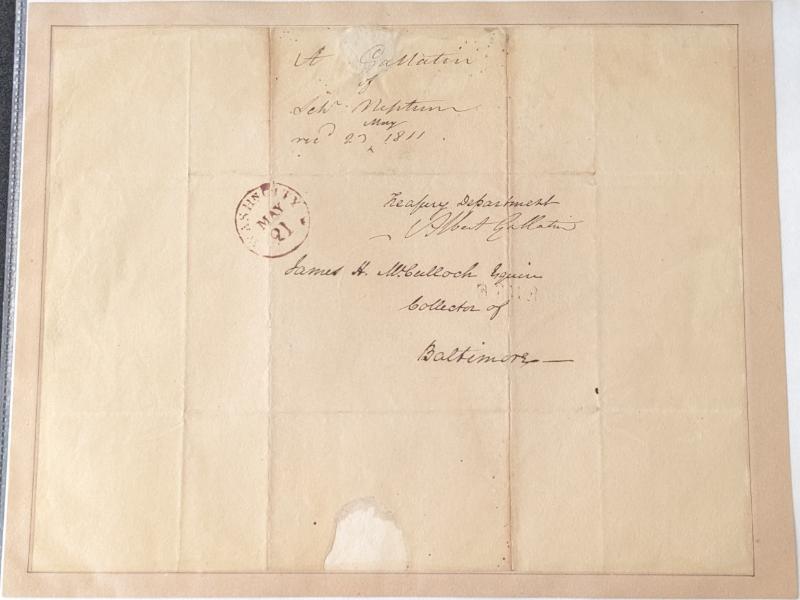 A Gallatin
of
Schr. Neptune
May
recd 23 1811
WASHN CITY
MAY
21
Treasury Department
Albert Gallatin
James H. McCulloch Esquire
Collector of
Baltimore